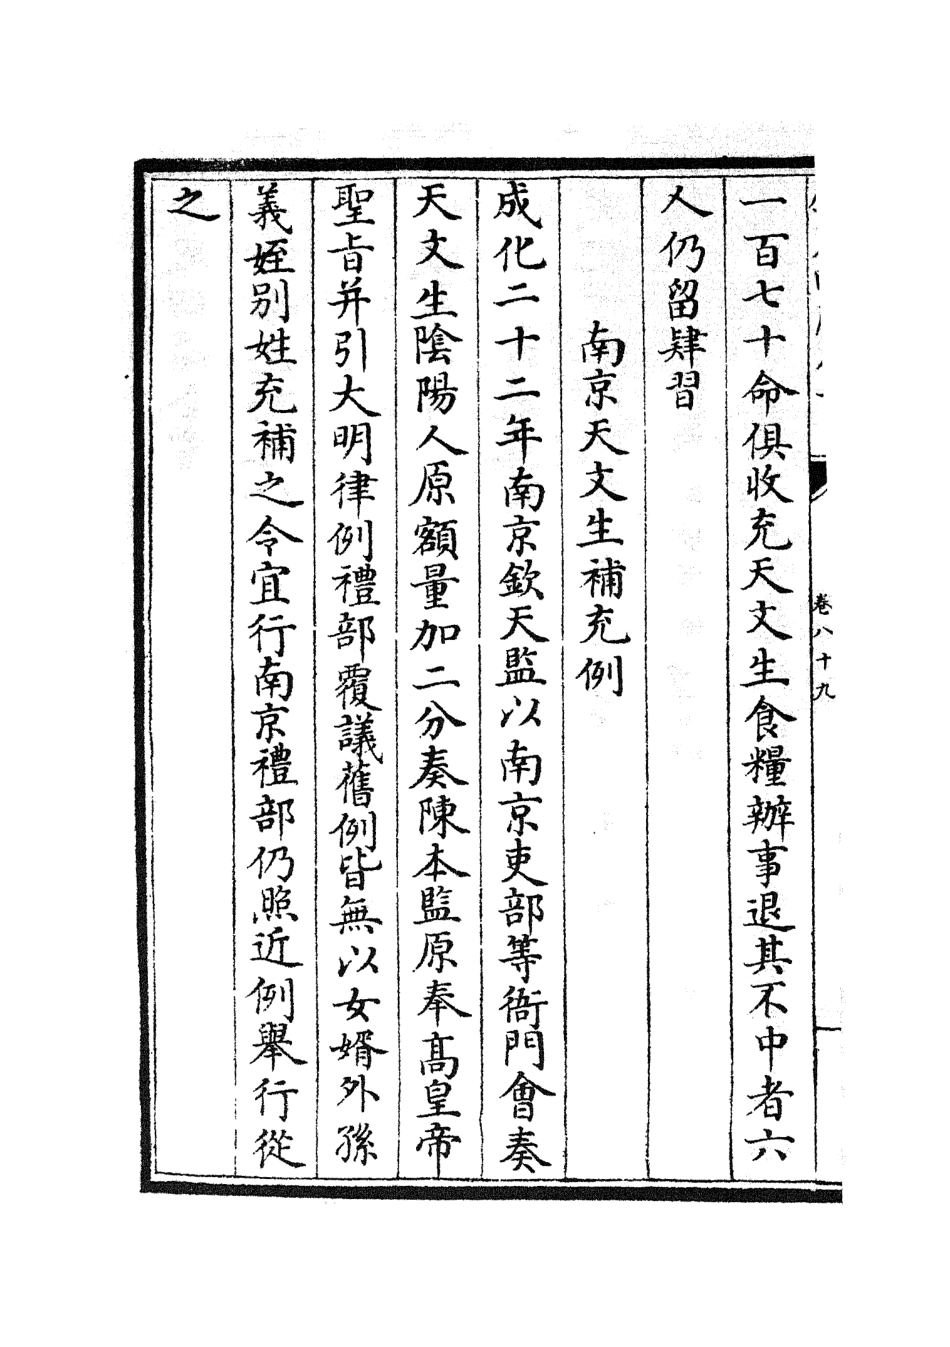 卷八十九
一百七十命俱收充天文生食糧辦事退其不中者六
人仍留肄習
南京天文生補充例
成化二十二年南京欽天監以南京吏部等衙門會奏
天文生陰陽人原額量加二分奏陳本監原奉髙皇帝
聖旨并引大明律例禮部覆議舊例皆無以女婿外孫
義姪别姓充補之令宜行南京禮部仍照近例舉行從
之